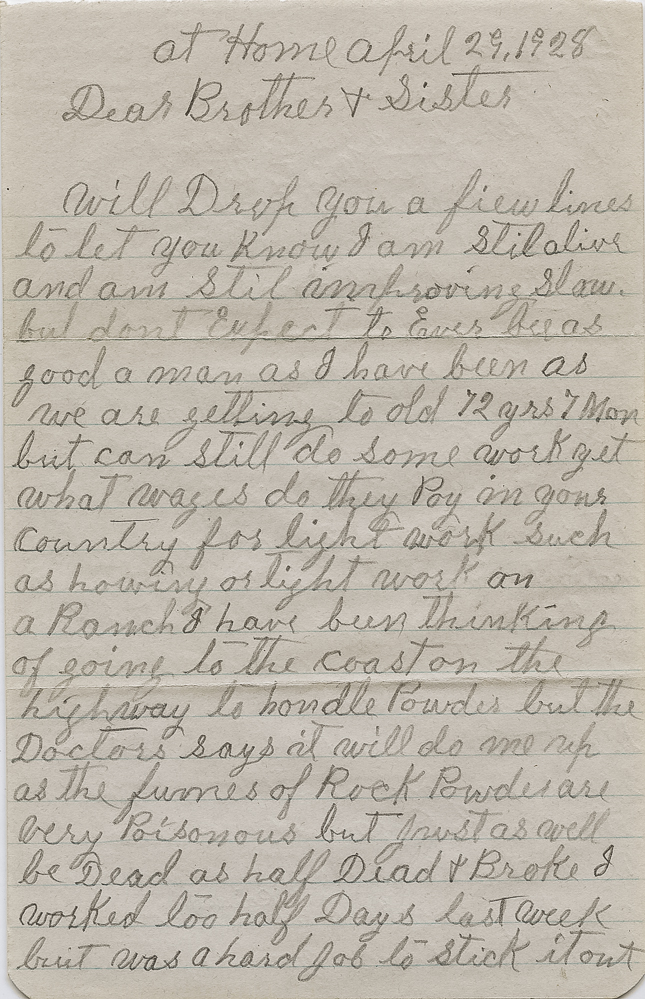 at Home april 29, 1928
Dear Brother & Sister
Will Drop you a fiew lines
to let you Know I am Stil alive
and am Stil improving Slow.
but dont Expect to Ever bee as
good a man as I have been as
we are getting to old 72 yrs 7 Mon
but can still do some work yet
what wages do they Pay in your
country for light work such
as howing or light work on
a Ranch I have been thinking
of going to the coast on the
highway to handle Powder but the
Doctors says it will do me up
as the fumes of Rock Powder are
very Poisonous but Just as well
be Dead as half Dead & Broke I
worked too half Days last week
but was a hard Job to stick it out